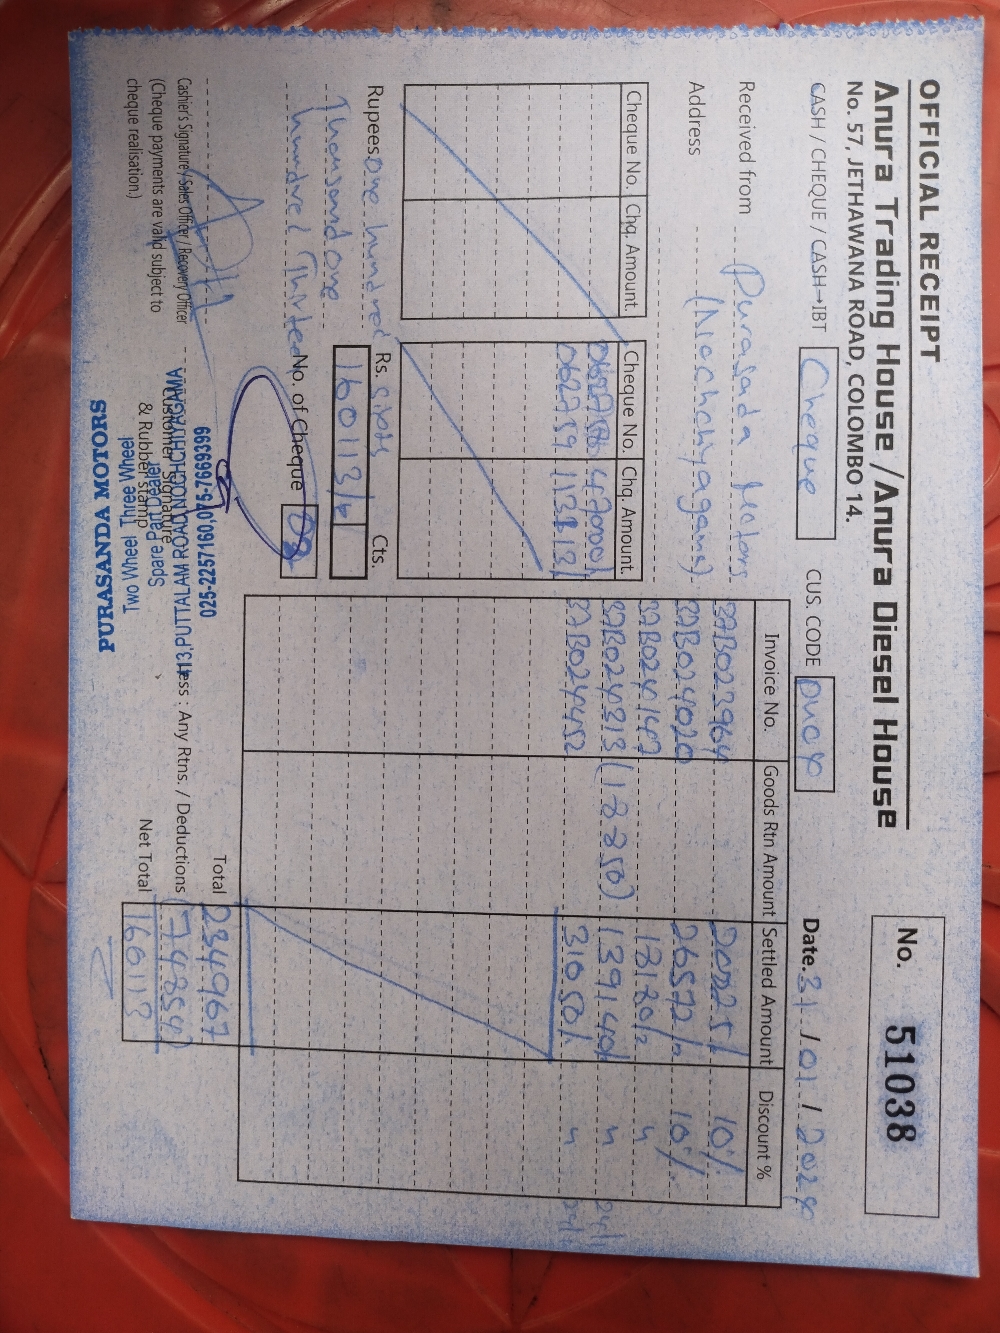 OFFICIAL RECEIPT
Anura Trading House /Anura Diesel House
No. 57, JETHAWANA ROAD, COLOMBO 14.
No. 51038
CASH / CHEQUE / CASH→IBT Cheque
CUS. CODE
Date. 31 / 01 / 2024
Received from Purasada Motors
Address (Nochchiyagama)
Cheque No. Chq. Amount Cheque No. Chq. Amount
47000/
062759 113113/
Invoice No. Goods Rtn Amount Settled Amount Discount %
23964 10%
024020 26572/= 10%
024147 18120/= "
024313 (1-8-350) 139140/= "
024452 31050/= "
24/1
Rupees One hundred Sixty
Thousand one
hundred Thirteen
Rs. 160113/= Cts.
No. of Cheque 02
Total 234967
Less : Any Rtns. / Deductions (74854)
Net Total 160113
Cashier's Signature / Sales Officer / Recovery Officer
(Cheque payments are valid subject to
cheque realisation.)
Customer Signature
& Rubber stamp
PURASANDA MOTORS
Two Wheel Three Wheel
Spare Part Dealer
025-2257160, 075-7669399